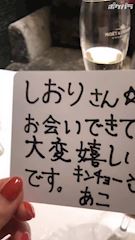 しおりさん☆
お会いできて
大変嬉しい
です。キンチョー
あこ